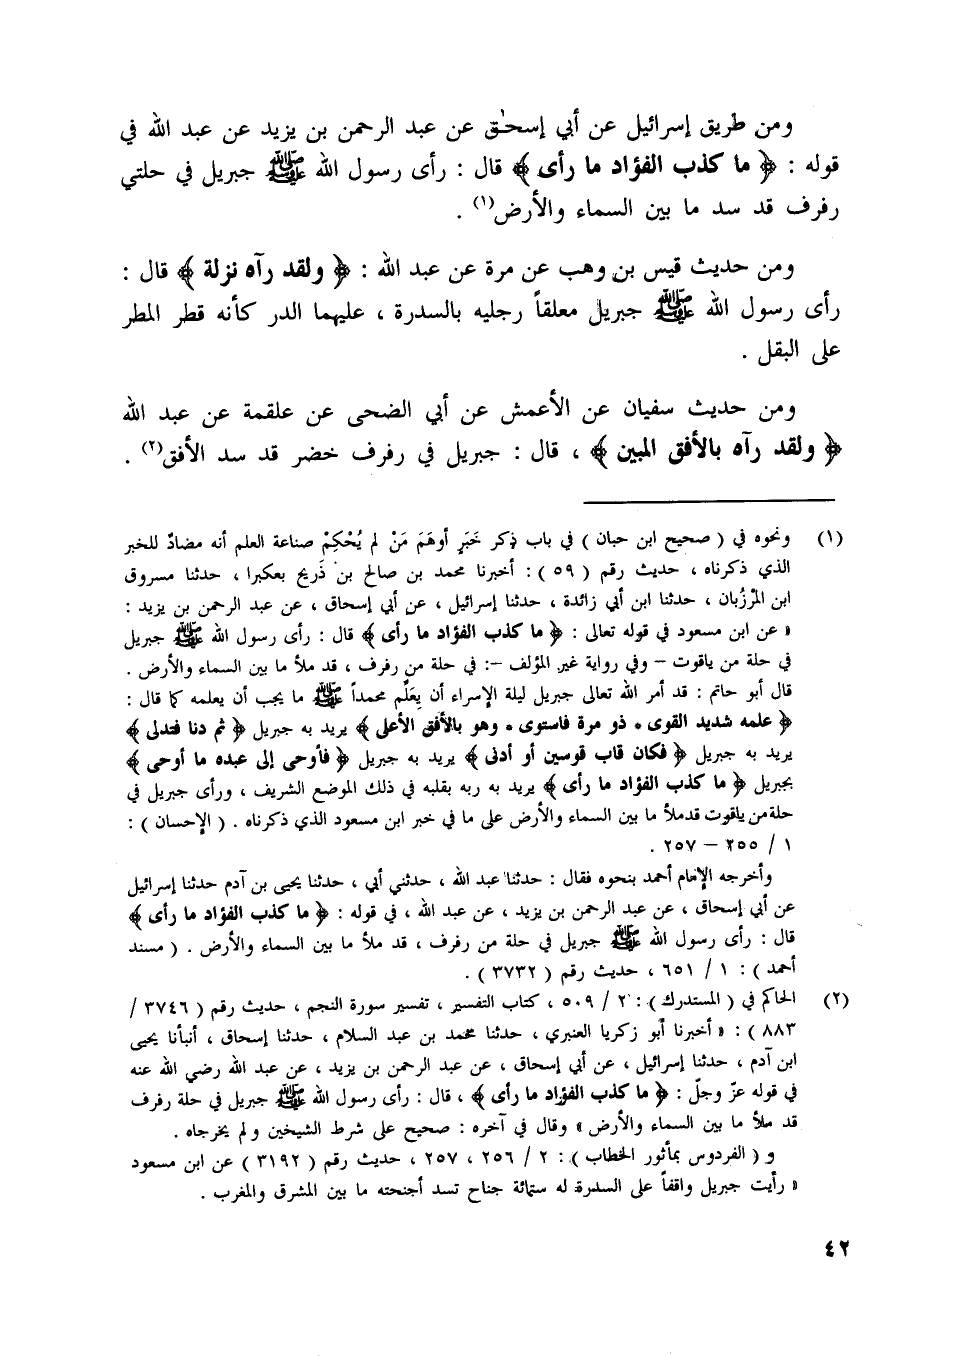 ومن طريق إسرائيل عن أبي إسحٰق عن عبد الرحمن بن يزيد عن عبد الله في
قوله : ﴿ ما كذب الفؤاد ما رأى ﴾ قال : رأى رسول الله ﷺ جبريل في حلتي
رفرف قد سد ما بين السماء والأرض(١) .
ومن حديث قيس بن وهب عن مرة عن عبد الله : ﴿ ولقد رآه نزلة ﴾ قال :
رأى رسول الله ﷺ جبريل معلقاً رجليه بالسدرة ، عليهما الدر كأنه قطر المطر
على البقل .
ومن حديث سفيان عن الأعمش عن أبي الضحى عن علقمة عن عبد الله
﴿ ولقد رآه بالأفق المبين ﴾ ، قال : جبريل في رفرف خضر قد سد الأفق(٢) .
(١) ونحوه في ( صحيح ابن حبان ) في باب ذِكر خَبَرٍ أوهَمَ مَنْ لم يُحْكِمْ صناعة العلم أنه مضادٌ للخبر
الذي ذكرناه ، حديث رقم ( ٥٩ ) : أخبرنا محمد بن صالح بن ذَريح بعكبرا ، حدثنا مسروق
ابن المَرْزُبان ، حدثنا ابن أبي زائدة ، حدثنا إسرائيل ، عن أبي إسحاق ، عن عبد الرحمن بن يزيد :
« عن ابن مسعود في قوله تعالى : ﴿ ما كذب الفؤاد ما رأى ﴾ قال : رأى رسول الله ﷺ جبريل
في حلة من ياقوت – وفي رواية غير المؤلف –: في حلة من رفرف ، قد ملأ ما بين السماء والأرض .
قال أبو حاتم : قد أمر الله تعالى جبريل ليلة الإسراء أن يعلِّم محمداً ﷺ ما يجب أن يعلمه كما قال :
﴿ علمه شديد القوى * ذو مرة فاستوى * وهو بالأفق الأعلى ﴾ يريد به جبريل ﴿ ثم دنا فتدلى ﴾
يريد به جبريل ﴿ فكان قاب قوسين أو أدنى ﴾ يريد به جبريل ﴿ فأوحى إلى عبده ما أوحى ﴾
بجبريل ﴿ ما كذب الفؤاد ما رأى ﴾ يريد به ربه بقلبه في ذلك الموضع الشريف ، ورأى جبريل في
حلة من ياقوت قد ملأ ما بين السماء والأرض على ما في خبر ابن مسعود الذي ذكرناه . ( الإحسان ) :
١ / ٢٥٥ – ٢٥٧ .
وأخرجه الإمام أحمد بنحوه فقال : حدثنا عبد الله ، حدثني أبي ، حدثنا يحيى بن آدم حدثنا إسرائيل
عن أبي إسحاق ، عن عبد الرحمن بن يزيد ، عن عبد الله ، في قوله : ﴿ ما كذب الفؤاد ما رأى ﴾
قال : رأى رسول الله ﷺ جبريل في حلة من رفرف ، قد ملأ ما بين السماء والأرض . ( مسند
أحمد ) : ١ / ٦٥١ ، حديث رقم ( ٣٧٣٢ ) .
(٢) الحاكم في ( المستدرك ) : ٢ / ٥٠٩ ، كتاب التفسير ، تفسير سورة النجم ، حديث رقم ( ٣٧٤٦ /
٨٨٣ ) : « أخبرنا أبو زكريا العنبري ، حدثنا محمد بن عبد السلام ، حدثنا إسحاق ، أنبأنا يحيى
ابن آدم ، حدثنا إسرائيل ، عن أبي إسحاق ، عن عبد الرحمن بن يزيد ، عن عبد الله رضي الله عنه
في قوله عزّ وجلّ : ﴿ ما كذب الفؤاد ما رأى ﴾ ، قال : رأى رسول الله ﷺ جبريل في حلة رفرف
قد ملأ ما بين السماء والأرض » وقال في آخره : صحيح على شرط الشيخين ولم يخرجاه .
و ( الفردوس بمأثور الخطاب ) : ٢ / ٢٥٦ ، ٢٥٧ ، حديث رقم ( ٣١٩٢ ) عن ابن مسعود
« رأيت جبريل واقفاً على السدرة له ستمائة جناح تسد أجنحته ما بين المشرق والمغرب .
٤٢